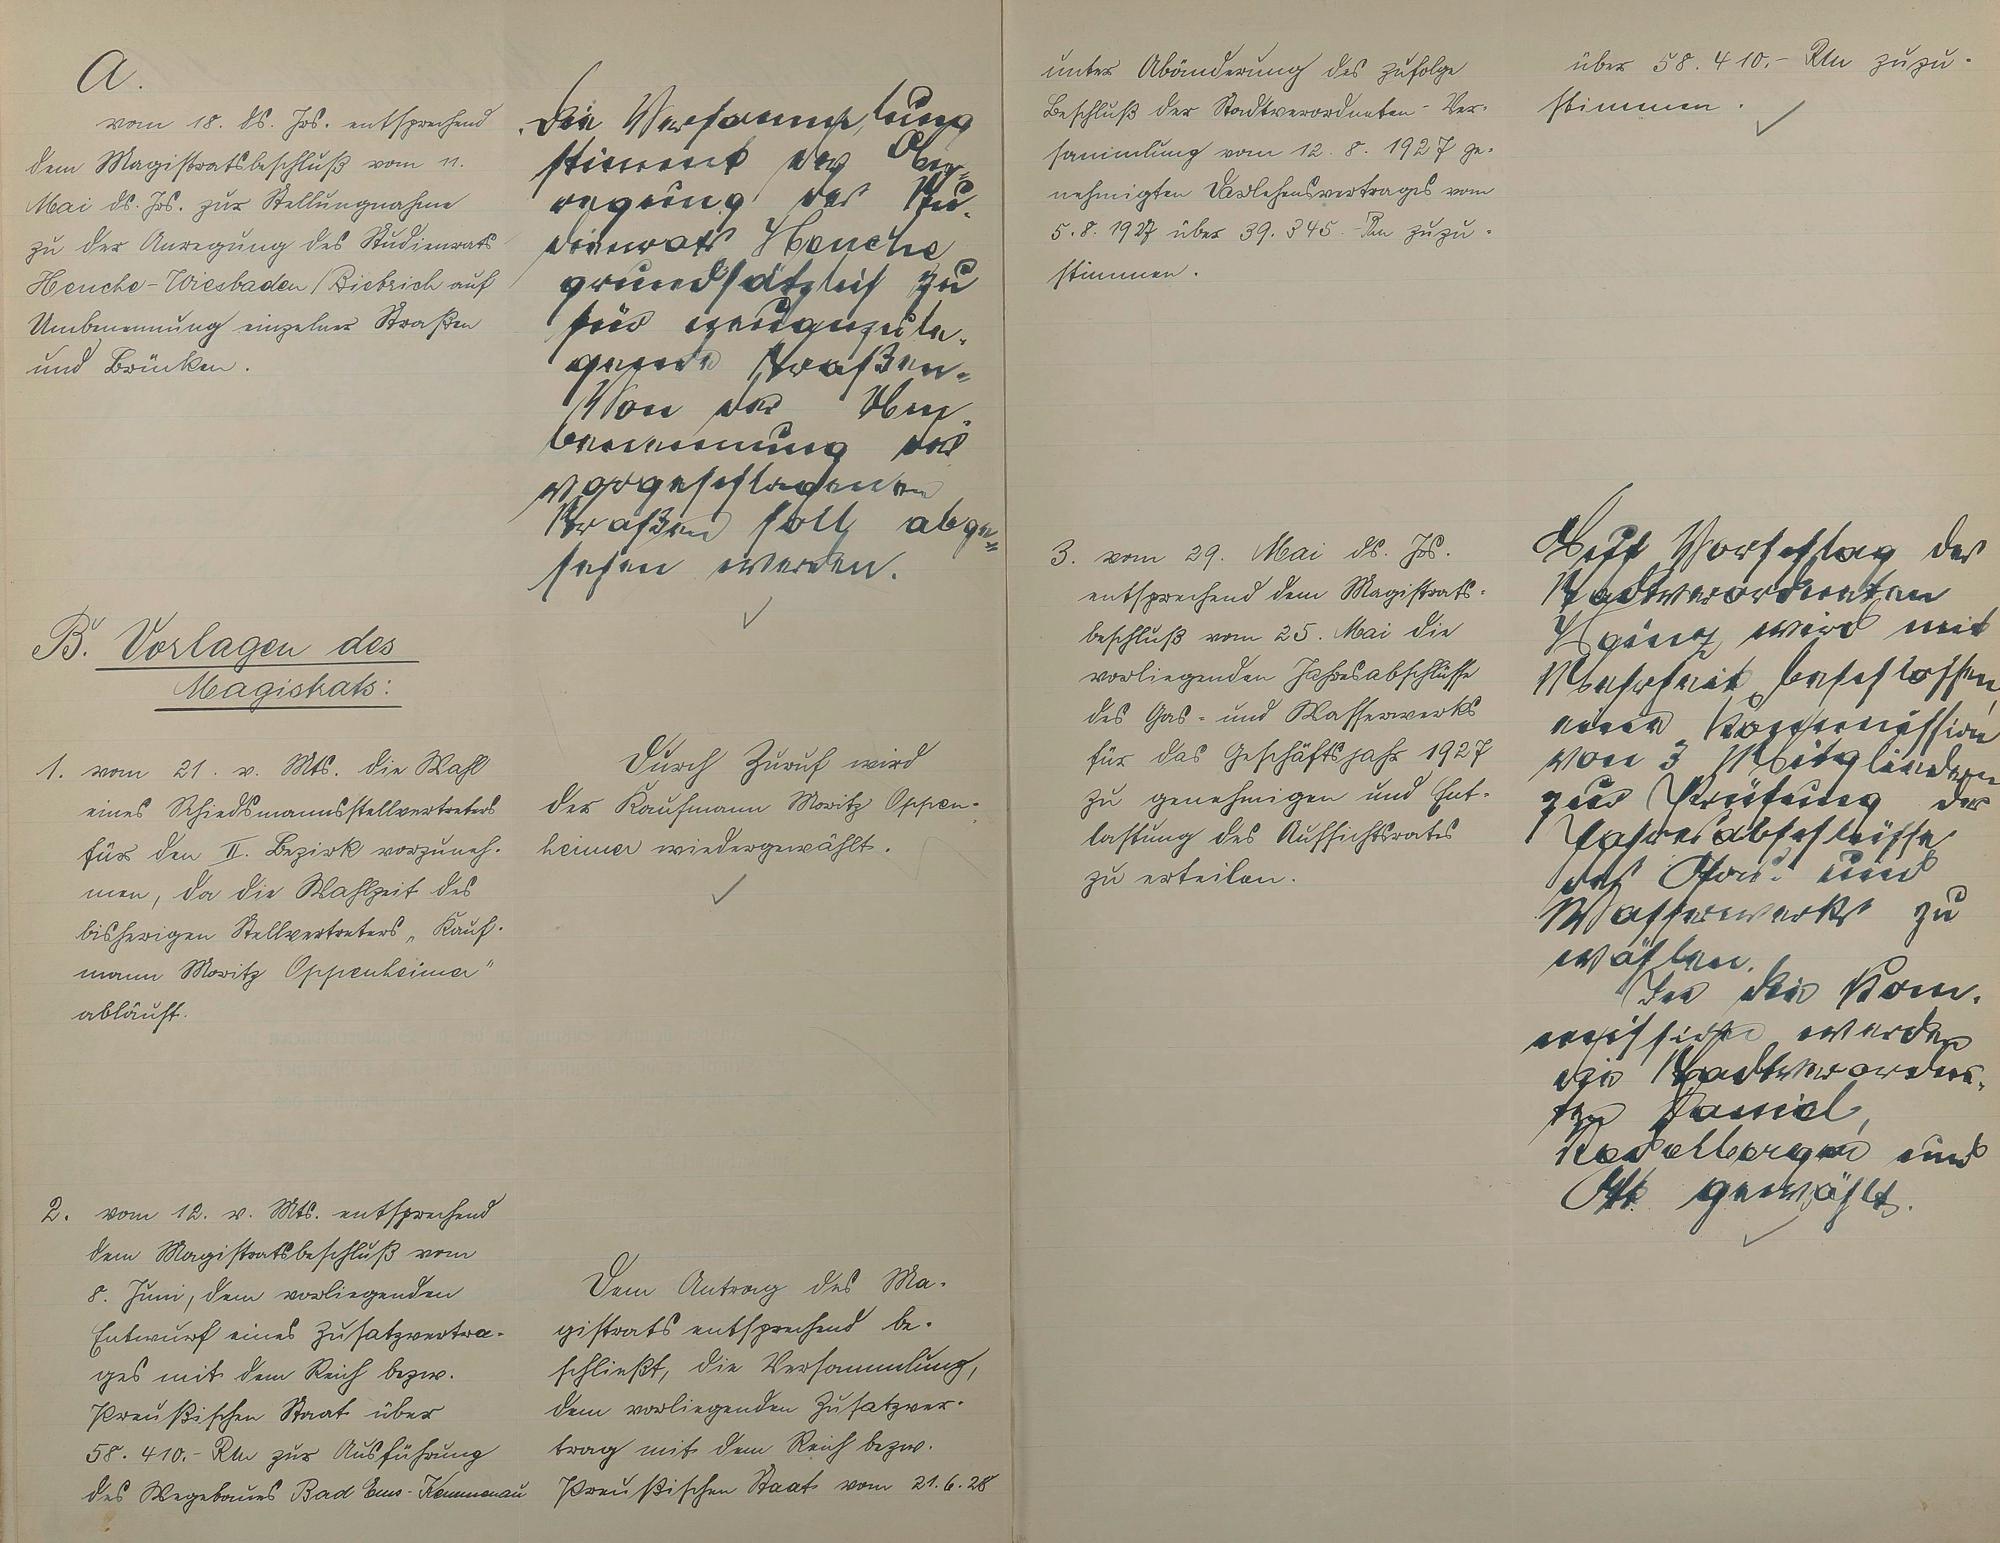 A.
vom 18. ds. Jrs. entsprechend
dem Magistratsbeschluß vom 11.
Mai ds. Jrs. zur Stellungnahme
zu der Anregung des Studienrats
Henche-Wiesbaden/Biebrich auf
Umbenennung einzelner Straßen
und Brücken.
Die Versammlung
stimmt der
regung des Stu-
dienrats Henche
grundsätzlich zu
für
Straßen.
Von der Um-
benennung der
vorgeschlagenen
Straßen soll abge-
sehen werden.
B. Vorlagen des
Magistrats:
1. vom 21. v. Mts. die Wahl
eines Schiedsmannsstellvertreters
für den II. Bezirk vorzuneh-
men, da die Wahlzeit des
bisherigen Stellvertreters „Kauf-
mann Moritz Oppenheimer"
abläuft.
Durch Zuruf wird
der Kaufmann Moritz Oppen-
heimer wiedergewählt.
2. vom 12. v. Mts. entsprechend
dem Magistratsbeschluß vom
8. Juni, dem vorliegenden
Entwurf eines Zusatzvertra-
ges mit dem Reich bezw.
Preußischen Staat über
58.410.- Rm zur Ausführung
des Wegebaues Bad Ems-Kemmenau
Dem Antrag des Ma-
gistrats entsprechend be-
schließt, die Versammlung,
dem vorliegenden Zusatzver-
trag mit dem Reich bezw.
Preußischen Staat vom 21.6.28
unter Abänderung des zufolge
Beschluß der Stadtverordneten-Ver-
sammlung vom 12.8.1927 ge-
nehmigten Darlehensvertrages vom
5.8.1927 über 39.345.- Rm zuzu-
stimmen.
über 58.410.- Rm zuzu-
stimmen.
3. vom 29. Mai ds. Jrs.
entsprechend dem Magistrats-
beschluß vom 25. Mai die
vorliegenden Jahresabschlüsse
des Gas- und Wasserwerks
für das Geschäftsjahr 1927
zu genehmigen und Ent-
lastung des Aufsichtsrates
zu erteilen.
Auf Vorschlag des
Stadtverordneten
wird mit
Mehrheit beschlossen
eine Kommission
von 3 Mitgliedern
zur Prüfung der
Jahresabschlüsse
des Gas- und
Wasserwerks zu
wählen.
In die Kom-
mission werden
die Stadtverordne-
ten Daniel,
und
Ott gewählt.